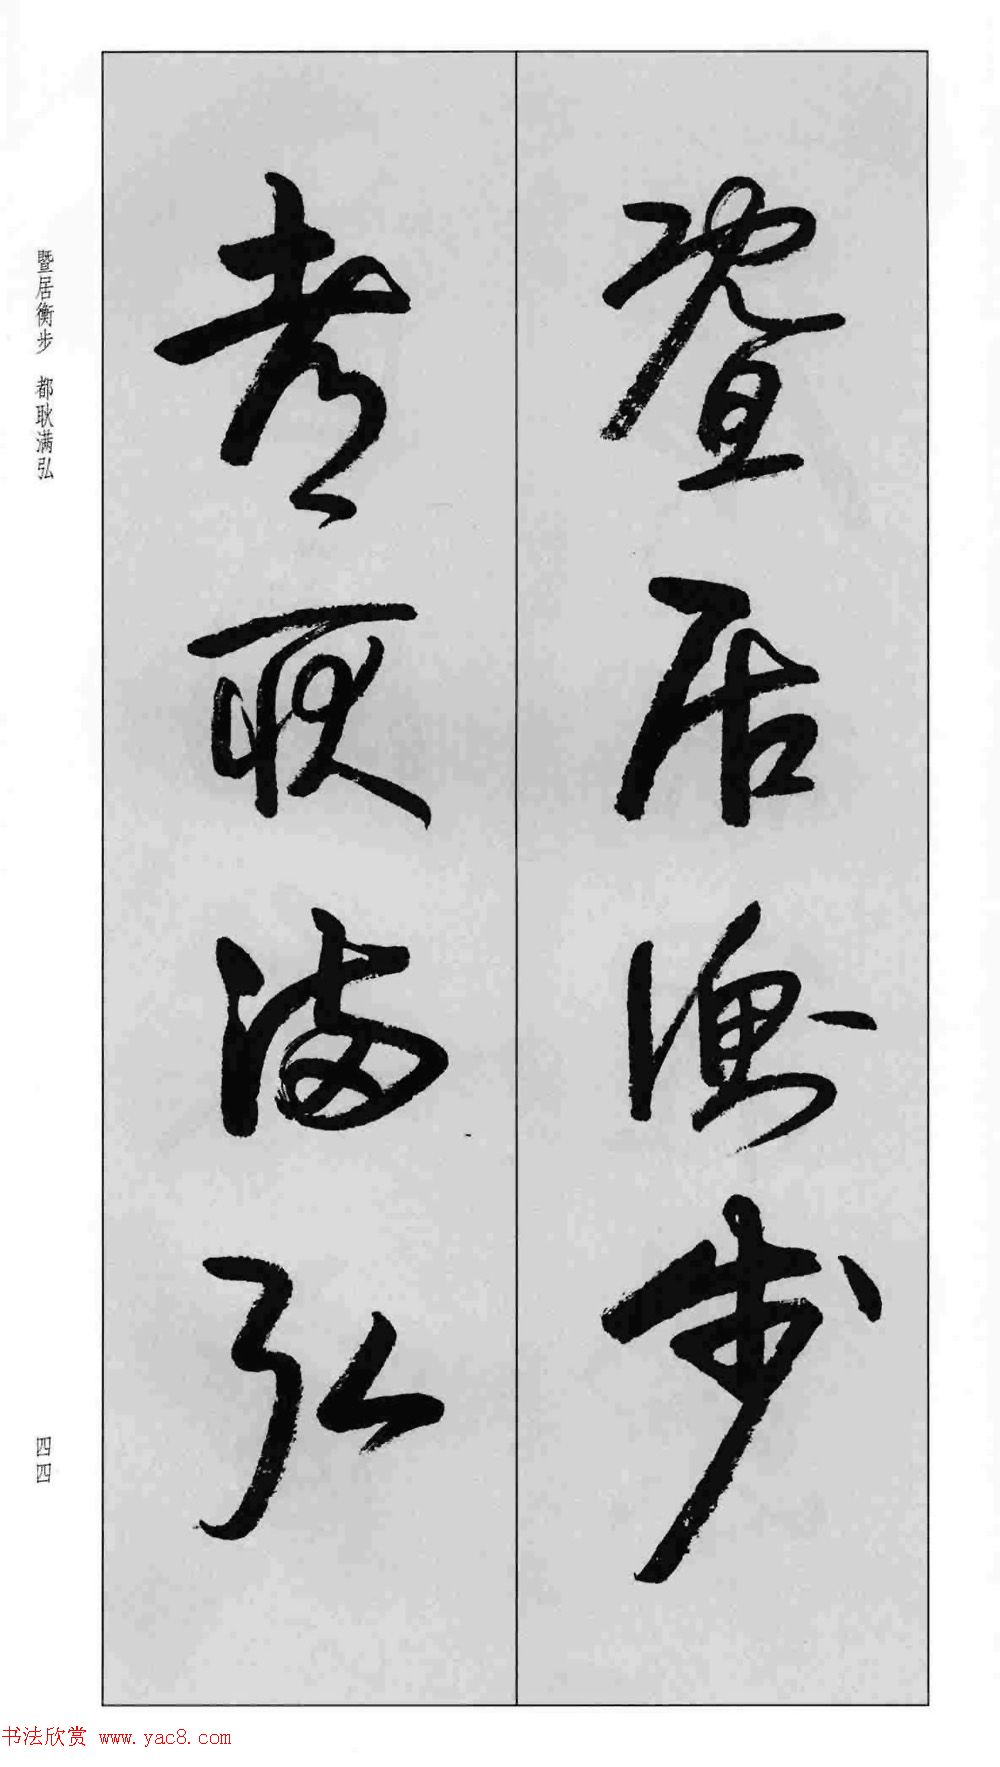 暨居衡步
都耿满弘
暨居衡步 都耿满弘
四四
书法欣赏 www.yac8.com